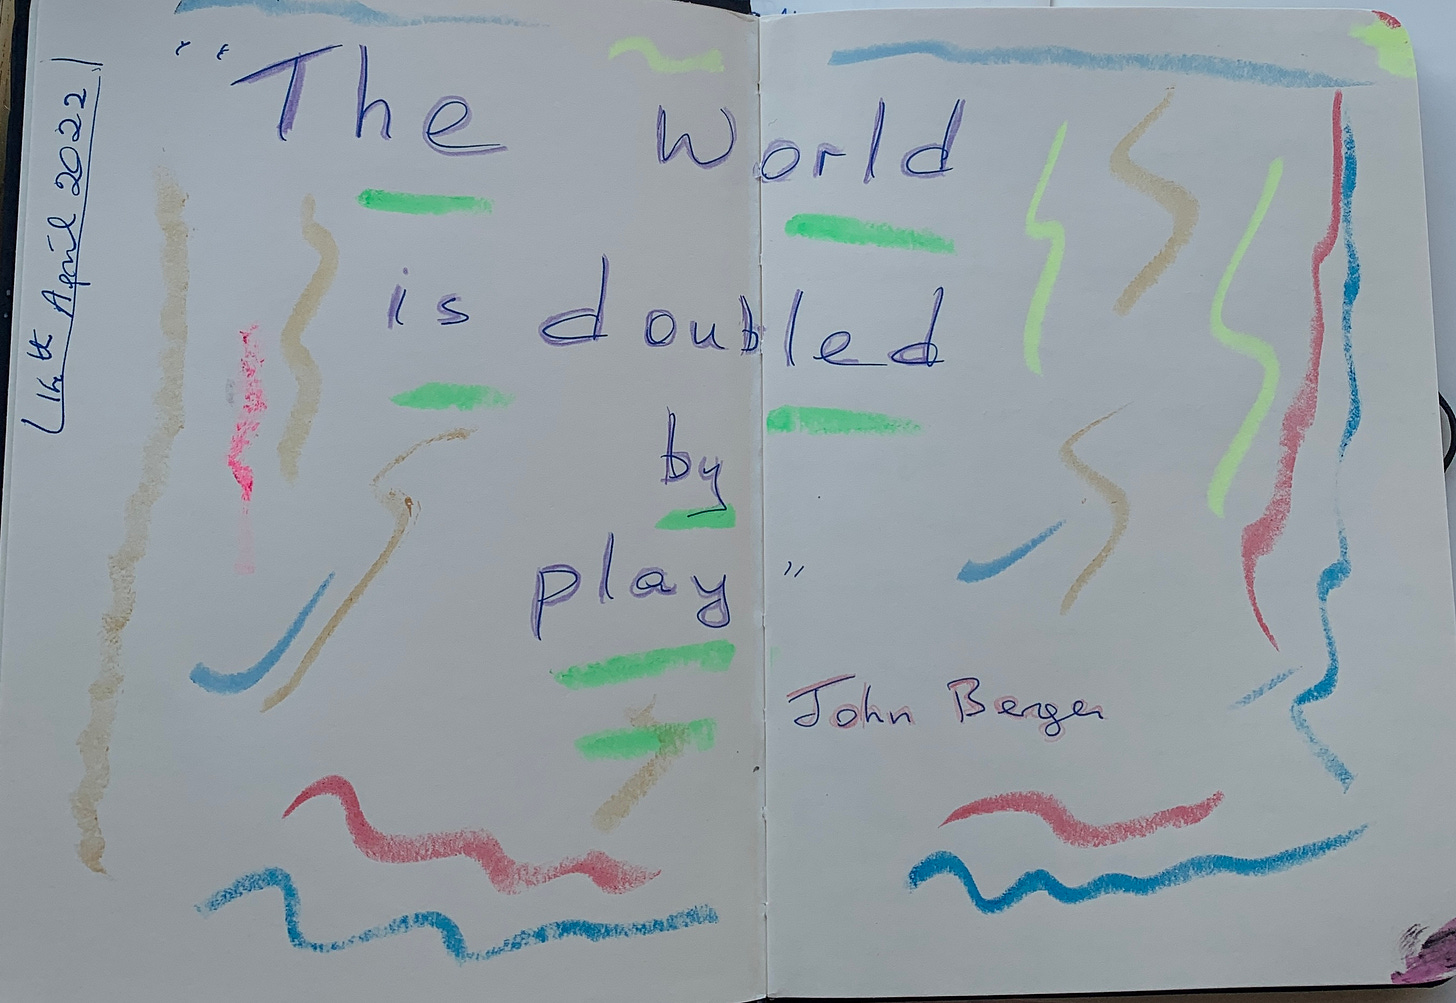 “The World
is doubled
by
play”
John Berger
April 2022